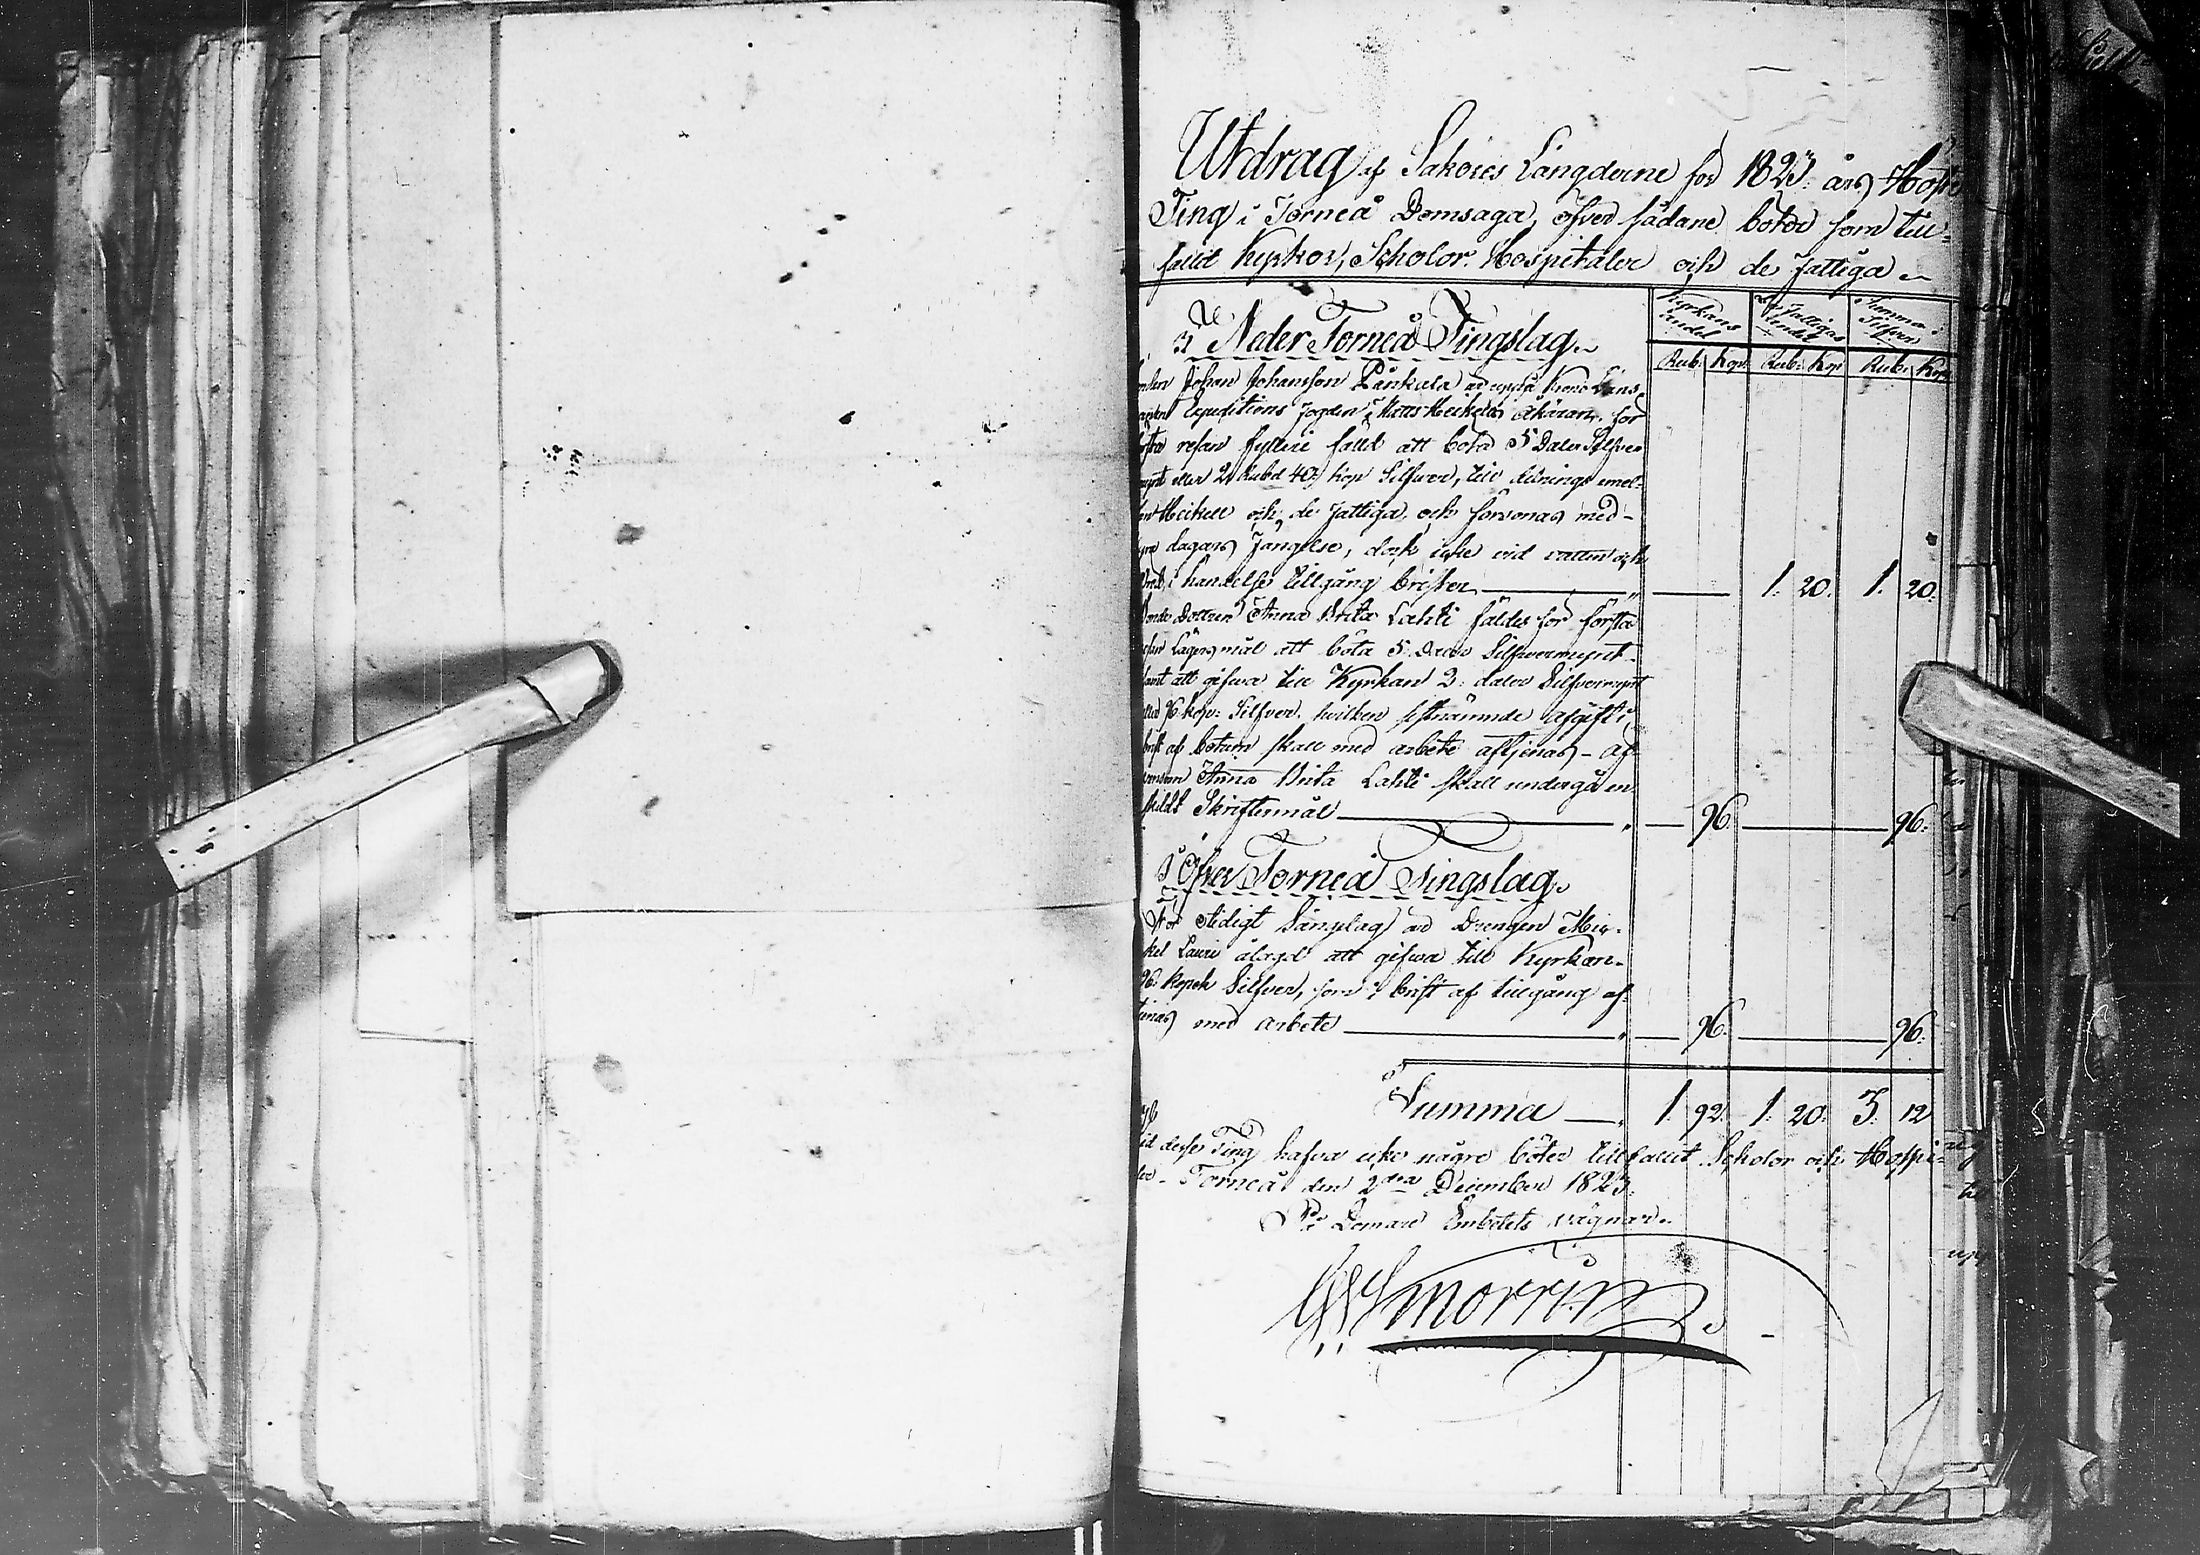 Utdrag af Sakören Längderne för 1823 års Höste
Ting i Torneå Domsaga, öfver sådane böter som till-
fallit Kyrkor, Scholor, Hospitaler och de fattiga
Kyrkans andel
de Fattigas andel
Summa i Silfver
Rub: Kop: Rub: Kop Rub: Kop
I Neder Torneå Tingslag.
Johan Johansson ad uppå Krono Läns
Expeditions Fogden Matts Heikels åkäran, för
första resan fylleri fälld att böta 5 Daler Silfver
mynt eller 2 Rubel 40 kop Silfver, till delnings emel-
Heikell och de fattiga, och försonas med
dagars Fängelse, dock icke vid vatten och
bröd, i händelse tillgång brister 1. 20. 1. 20.
Bonde Dottren Anna Brita Lahti fäldes för första
resan Lägersmål att böta 5 Daler Silfvermynt
samt att gifwa till Kyrkan 2: daler Silfvermynt
eller 96 kop: Silfver, hvilken sistnämnde afgift i
brist af botum skall med arbete aftjenas - Af
Anna Brita Lahti skall undergå en-
skildt Skriftermål 96. 96.
I Öfver Torneå Tingslag.
För otidigt Sänglag är Drengen Mic-
kel Lauri ålagd att gifwa till Kyrkan
96 kopek Silfver, som i brist af tillgång af-
tienas med arbete 96. 96.
Summa 1. 92. 1. 20. 3. 12
Vid desse Ting hafva icke några böter tillfallit Scholor och Hospi-
ler. Torneå den 2dra December 1823.
På Domare Embetets vägnar.